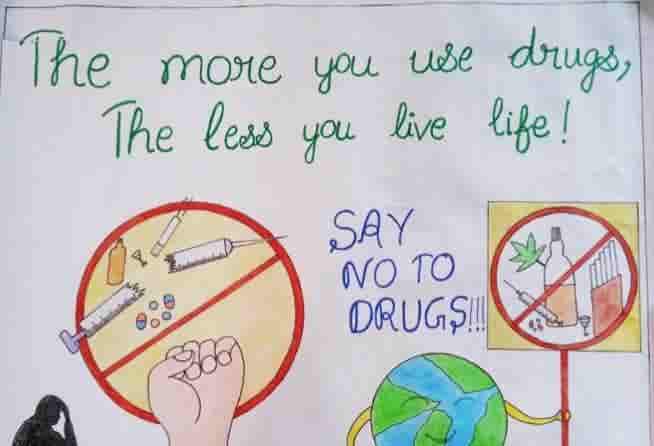 The more you use drugs,
The less you live life!
SAY
NO TO
DRUGS!!!